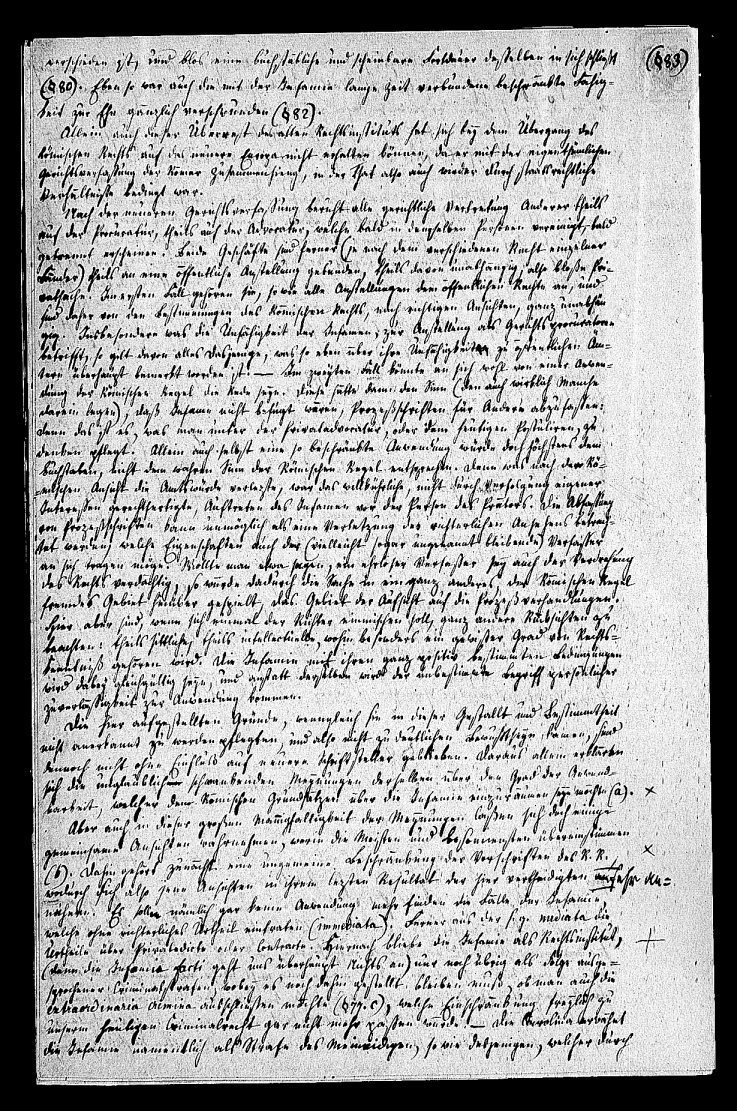 verschieden ist, und blos eine buchstäbliche und scheinbare Fortdauer desselben in sich schließt
(§83)
(§80). Eben so war auch die mit der Infamie lange Zeit verbundene beschränkte Fähig-
keit zur Ehe gänzlich verschwunden (§82).
Allein auch dieser Überrest des alten Rechtsinstituts hat sich bey dem Übergang des
Römischen Rechts auf das neuere Europa nicht erhalten können, da er mit der eigenthümlichen
Gerichtsverfassung der Römer zusammenhieng, in der That also auch wieder durch staatsrechtliche
Verhältnisse bedingt war.
Nach der neueren Gerichtsverfassung beruht alle gerichtliche Vertretung Anderer theils
auf der Procuratur, theils auf der Advocatur, welche bald in denselben Personen vereinigt, bald
getrennt erscheinen. Beide Geschäfte sind ferner (je nach dem verschiedenen Recht einzelner
Länder) theils an eine öffentliche Anstellung gebunden, theils davon unabhängig, also bloße Pri-
vatsache. Im ersten Fall gehören sie, so wie alle Anstellungen dem öffentlichen Rechte an, und
sind daher von den Bestimmungen des Römischen Rechts, nach richtigen Ansichten, ganz unabhän-
gig. Insbesondere was die Unfähigkeit der Infamen zur Anstellung als Gerichtsprocuratoren
betrifft, so gilt davon alles Dasjenige, was so eben über ihre Unfähigkeit zu öffentlichen Äm-
tern überhaupt bemerkt worden ist. — Im zweyten Fall könnte an sich wohl von einer Anwen-
dung der Römischen Regel die Rede seyn. Diese hätte dann den Sinn (den auch wirklich Manche
darein legen), daß Infame nicht befugt wären, Prozeßschriften für Andere abzufassen:
denn das ist es, was man unter der Privatadvocatur, oder dem heutigen Postuliren, zu
denken pflegt. Allein auch selbst eine so beschränkte Anwendung würde doch höchstens dem
Buchstaben, nicht dem wahren Sinn der Römischen Regel entsprechen. Denn was nach der Rö-
mischen Ansicht die Amtswürde verletzte, war das willkührliche, nicht durch Verfolgung eigener
Interessen gerechtfertigte, Auftreten des Infamen vor der Person des Prätors. Die Abfassung
von Prozeßschriften kann unmöglich als eine Verletzung des richterlichen Ansehens betrach-
tet werden, welche Eigenschaften auch der (vielleicht sogar ungenannt bleibende) Verfasser
an sich tragen möge. Wollte man etwa sagen, ein ehrloser Verfasser sey auch der Verdrehung
des Rechts verdächtig, so würde dadurch die Sache in ein ganz anderes, der Römischen Regel
fremdes Gebiet hinüber gespielt, das Gebiet der Aufsicht auf die Prozeßverhandlungen.
Hier aber sind, wenn sich einmal der Richter einmischen soll, ganz andere Rücksichten zu
beachten: theils sittliche, theils intellectuelle, wohin besonders ein gewisser Grad von Rechts-
kenntniß gehören wird. Die Infamie mit ihren ganz positiv bestimmten Bedingungen
wird dabey gleichgültig seyn, und anstatt derselben wird der unbestimmte Begriff persönlicher
Zuverlässigkeit zur Anwendung kommen.
Die hier aufgestellten Gründe, wenngleich sie in dieser Gestalt und Bestimmtheit
nicht anerkannt zu werden pflegten, und also nicht zu deutlichem Bewußtseyn kamen, sind
dennoch nicht ohne Einfluß auf neuere Schriftsteller geblieben. Daraus allein erklären
sich die unglaublich schwankenden Meynungen derselben über den Grad der Anwend-
barkeit, welcher dem Römischen Grundsätzen über die Infamie einzuräumen seyn möchte (a). ×
Aber auch in dieser großen Mannigfaltigkeit der Meynungen lassen sich doch einige
gemeinsame Ansichten wahrnehmen, worin die Meisten und Besonnensten übereinstimmen
(b). Dahin gehört zunächst eine ungemeine Beschränkung der Vorschriften des R. R., ×
wodurch sich also jene Ansichten in ihrem letzten Resultat der hier vertheidigten sehr an-
nähern. Es sollen nämlich gar keine Anwendung mehr finden die Fälle der Infamie
welche ohne richterliches Urtheil eintraten (immediata), ferner aus der s. g. mediata die
Urtheile über Privatdelicte oder Contracte. Hiernach bliebe die Infamie als Rechtsinstitut,
(denn die Infamia facti geht uns überhaupt Nichts an) nur noch übrig als Folge ausge-
sprochener Criminalstrafen, wobey es noch dahin gestellt bleiben muß, ob man auch die
extraordinaria crimina ausschließen möchte (§77.c), welche Einschränkung freylich zu
unserm heutigen Criminalrecht gar nicht mehr passen würde. — Die Carolina erwähnt
die Infamie namentlich als Strafe des Meineidigen, so wie desjenigen, welcher durch